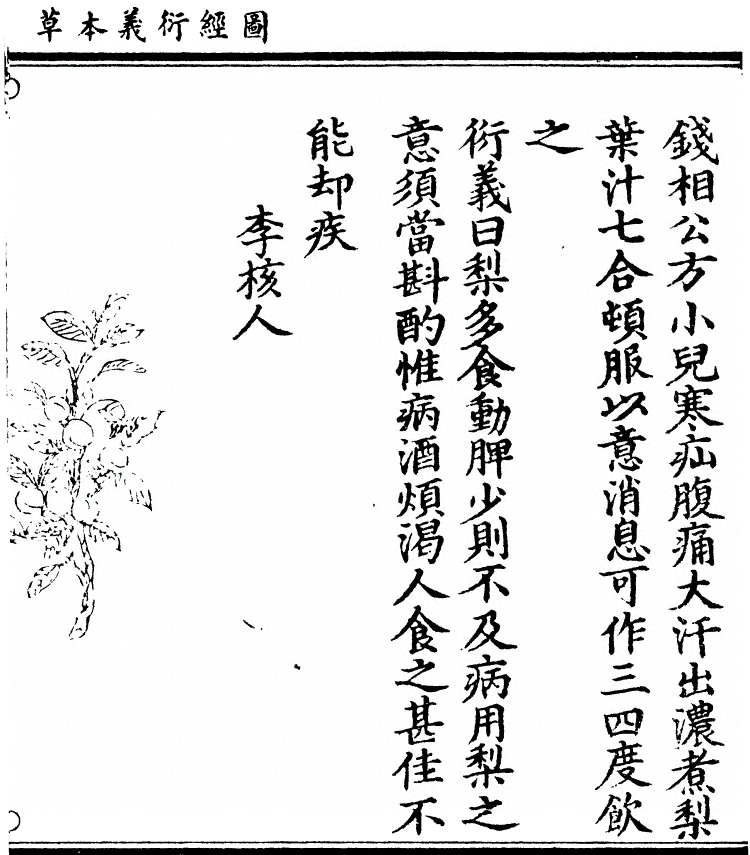 圖經衍義本草
錢相公方小兒寒疝腹痛大汗出濃煮梨
葉汁七合頓服以意消息可作三四度飲
之
衍義曰梨多食動脾少則不及病用梨之
意須當斟酌惟病酒煩渴人食之甚佳不
能却疾
李核人